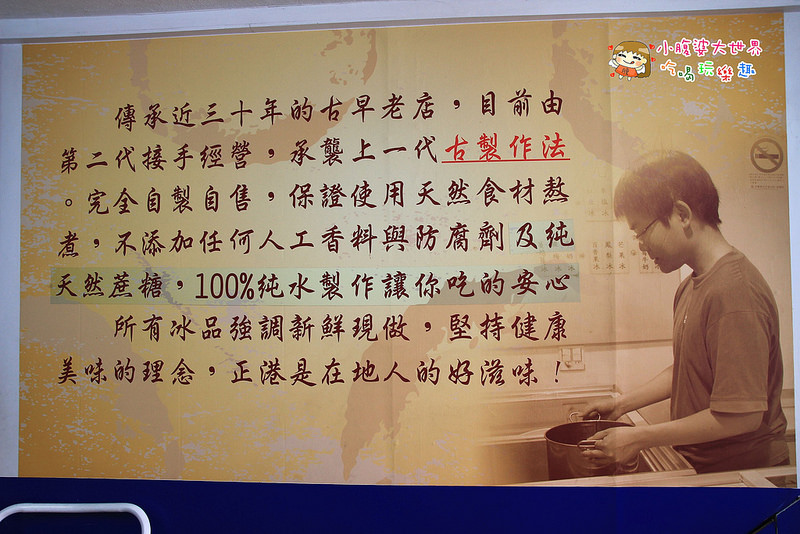 小腹婆大世界
吃喝玩樂趣
傳承近三十年的古早老店，目前由
第二代接手經營，承襲上一代古製作法
。完全自製自售，保證使用天然食材熬
煮，不添加任何人工香料與防腐劑及純
天然蔗糖，100%純水製作讓你吃的安心
所有冰品強調新鮮現做，堅持健康
美味的理念，正港是在地人的好滋味！